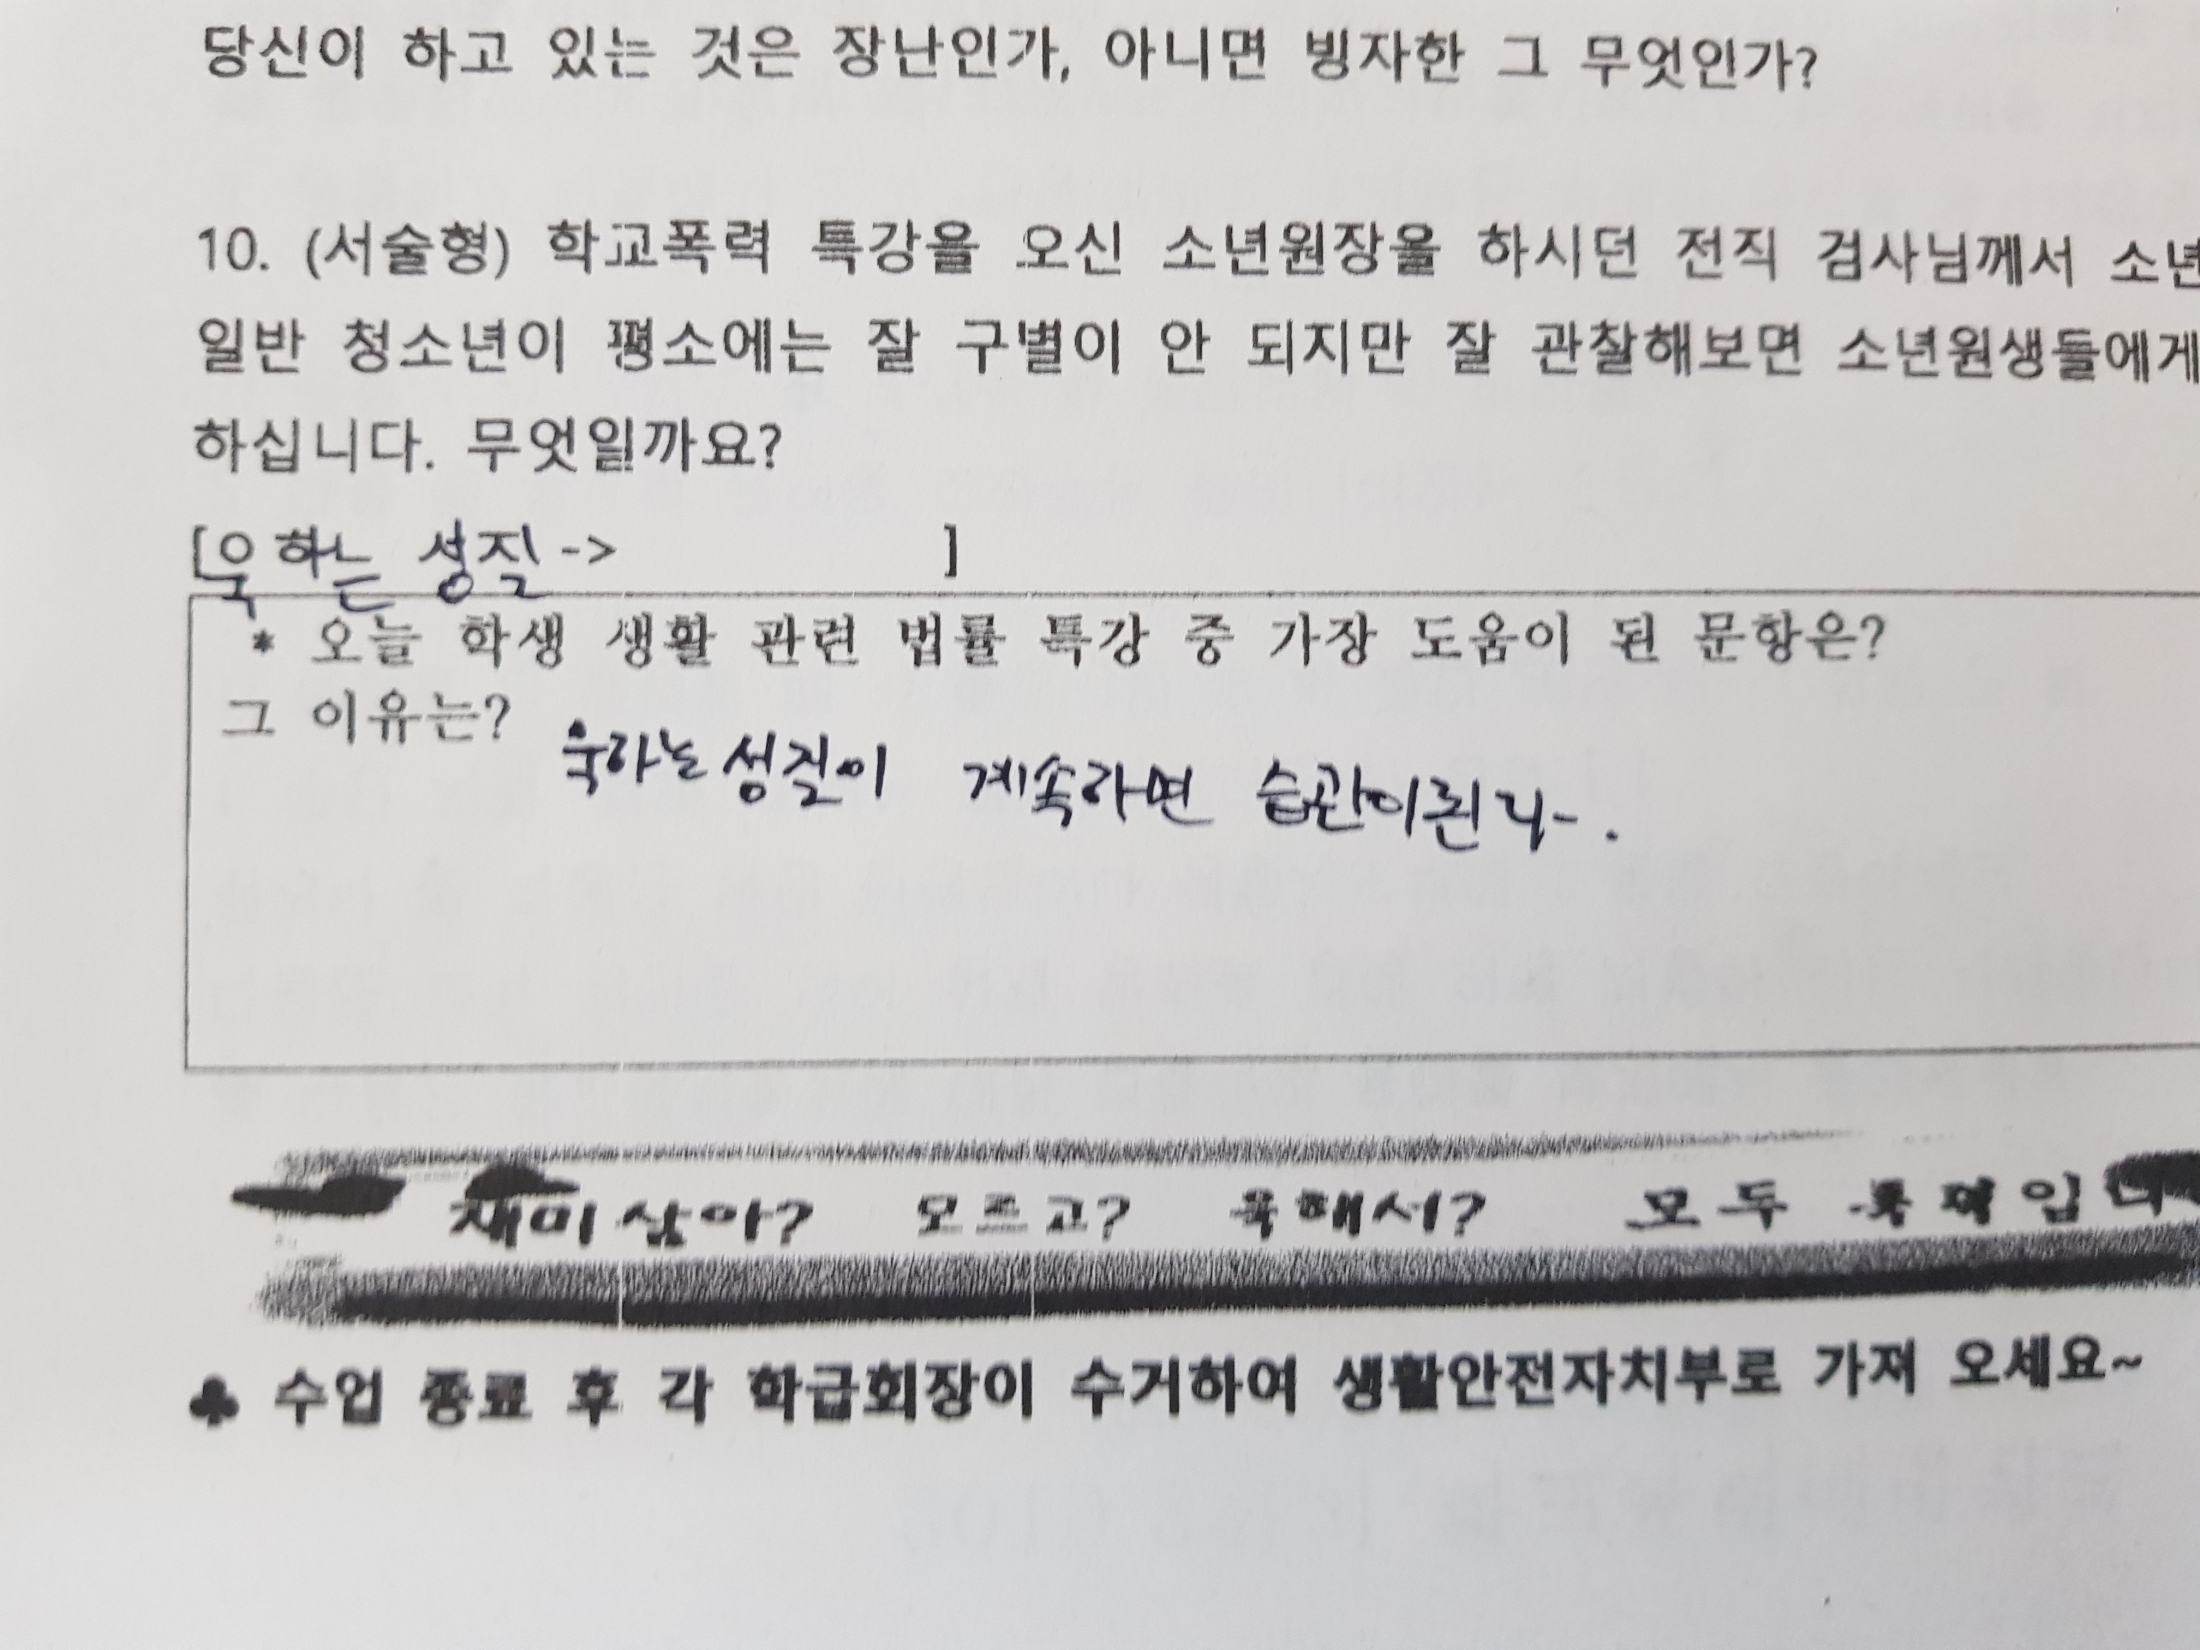 당신이 하고 있는 것은 장난인가, 아니면 빙자한 그 무엇인가?
10. (서술형) 학교폭력 특강을 오신 소년원장을 하시던 전직 검사님께서 소년
일반 청소년이 평소에는 잘 구별이 안 되지만 잘 관찰해보면 소년원생들에게
하십니다. 무엇일까요?
[욱하는 성질 -> ]
* 오늘 학생 생활 관련 법률 특강 중 가장 도움이 된 문항은?
그 이유는?
욱하는 성질이 계속라면 습관이된다.
재미삼아? 모르고? 욱해서? 모두 폭력입니
♣ 수업 종료 후 각 학급회장이 수거하여 생활안전자치부로 가져 오세요~